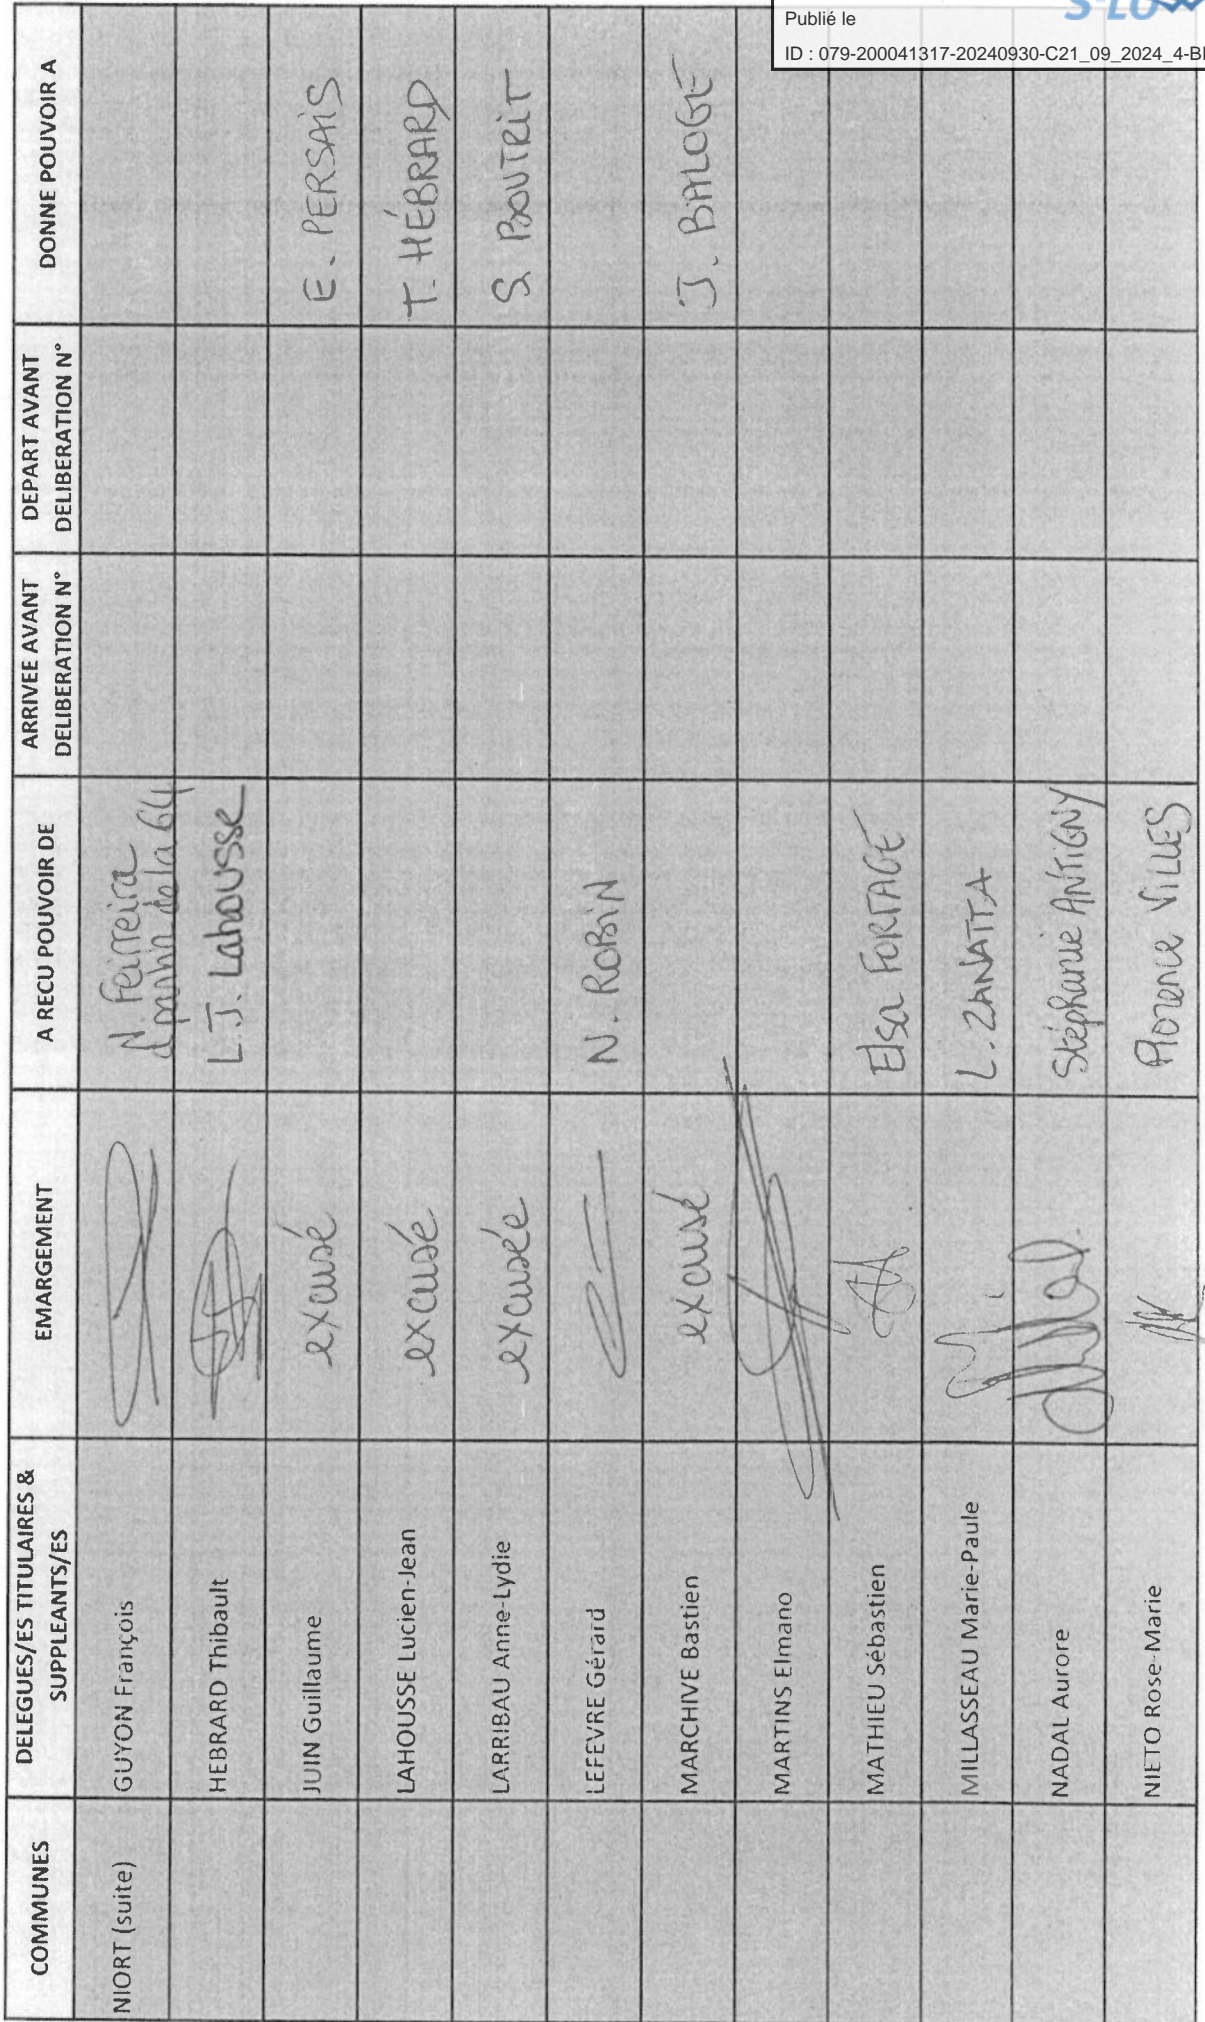 Publié le
ID : 079-200041317-20240930-C21_09_2024_4-
COMMUNES DELEGUES/ES TITULAIRES & SUPPLEANTS/ES EMARGEMENT A RECU POUVOIR DE ARRIVEE AVANT DELIBERATION N° DEPART AVANT DELIBERATION N° DONNE POUVOIR A
NIORT (suite) GUYON François N. Ferreira
HEBRARD Thibault L.J. Lahousse
JUIN Guillaume excusé E. PERSAIS
LAHOUSSE Lucien-Jean excusé T. HÉBRARD
LARRIBAU Anne-Lydie excusée S. BOUTRIT
LEFEVRE Gérard N. ROBIN
MARCHIVE Bastien excusé J. BALOGE
MARTINS Elmano
MATHIEU Sébastien Elsa FORTAGE
MILLASSEAU Marie-Paule L. ZANATTA
NADAL Aurore Stéphanie ANTIGNY
NIETO Rose-Marie Florence VILLES